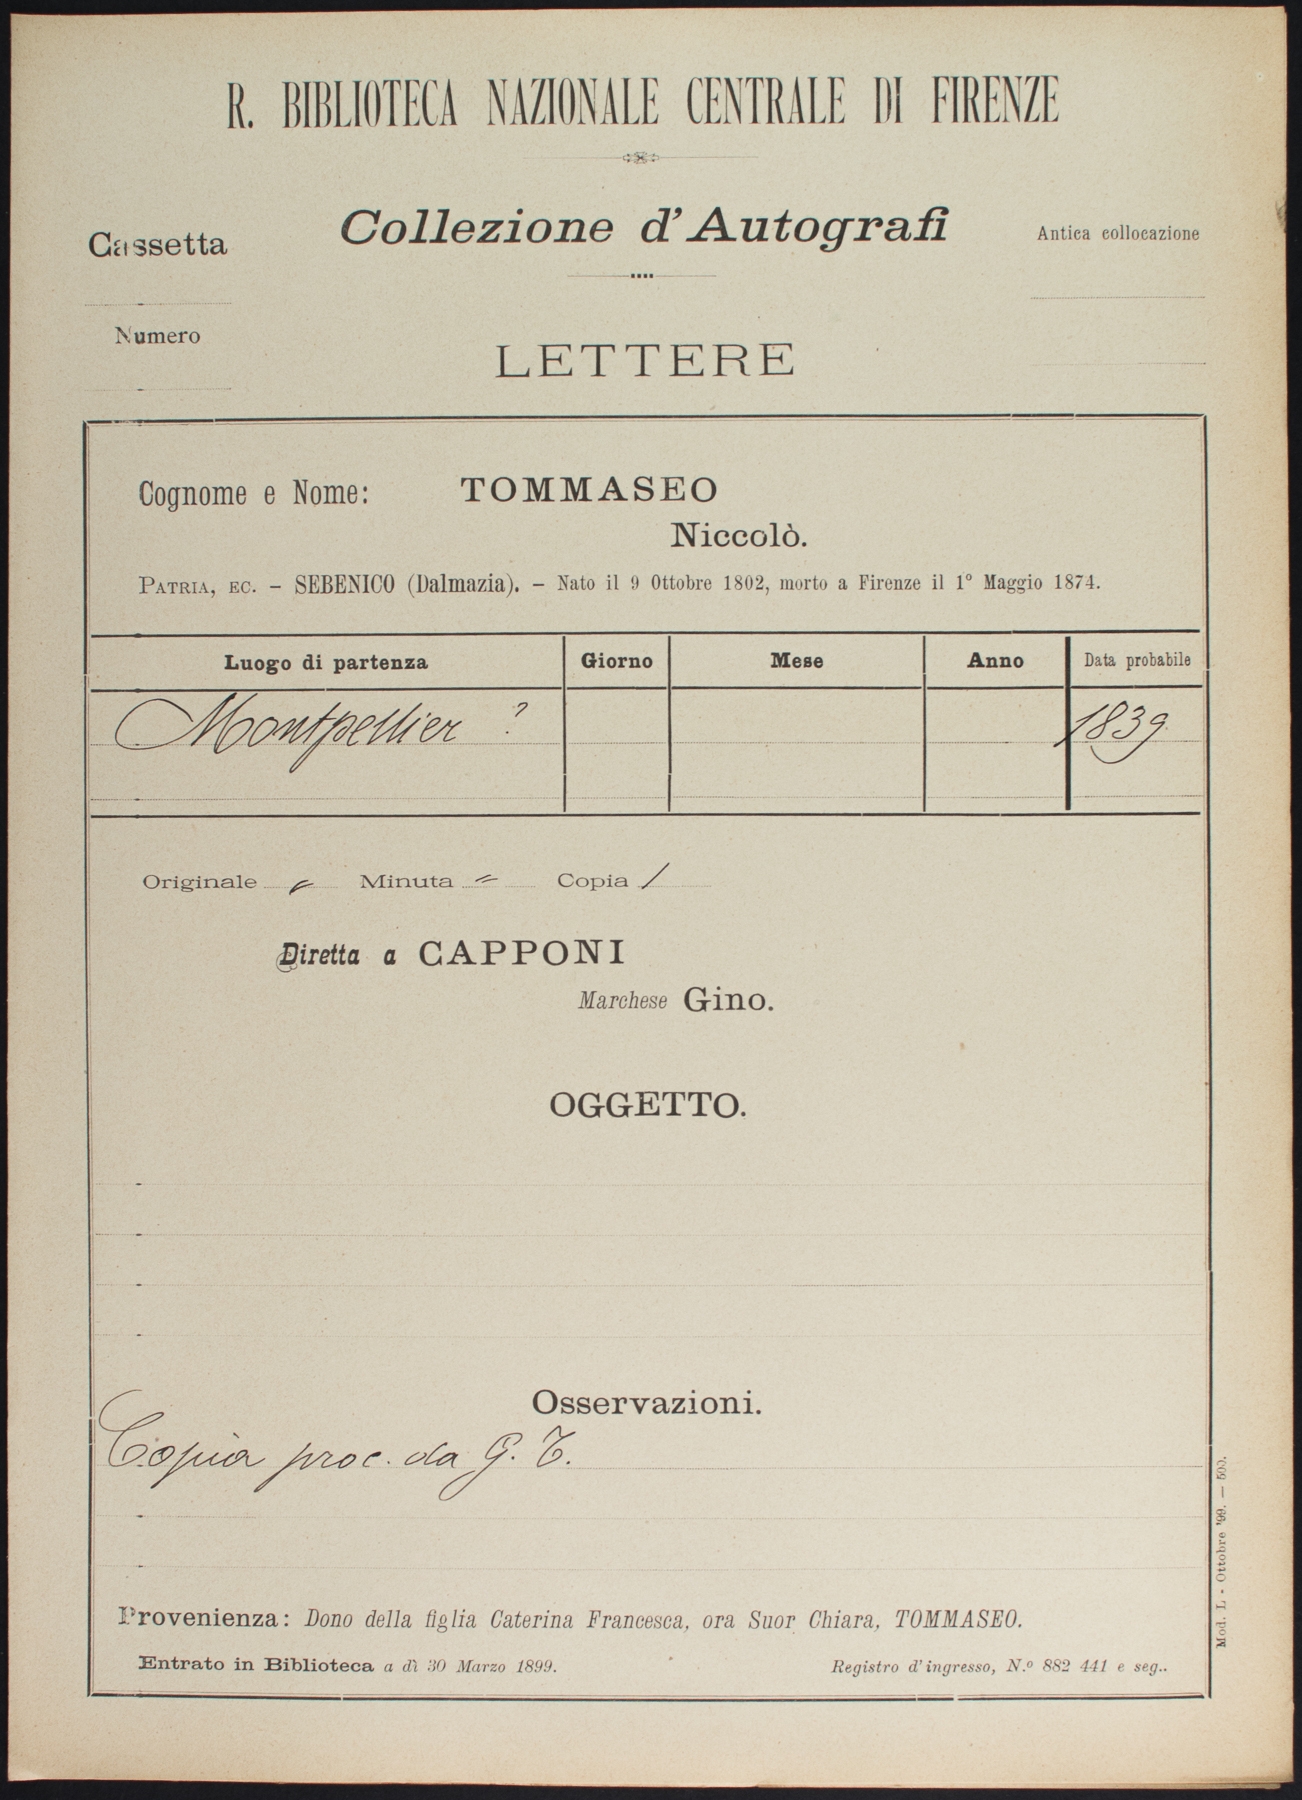 R. BIBLIOTECA NAZIONALE CENTRALE DI FIRENZE
Cassetta
Collezione d'Autografi
Antica collocazione
Numero
LETTERE
Cognome e Nome: TOMMASEO
Niccolò.
PATRIA, EC. – SEBENICO (Dalmazia). – Nato il 9 Ottobre 1802, morto a Firenze il 1º Maggio 1874.
Luogo di partenza Giorno Mese Anno Data probabile
Montpellier ? 1839
Originale " Minuta " Copia /
Diretta a CAPPONI
Marchese Gino.
OGGETTO.
Osservazioni.
Copia proc. da G. T.
Provenienza: Dono della figlia Caterina Francesca, ora Suor Chiara, TOMMASEO.
Entrato in Biblioteca a dì 30 Marzo 1899. Registro d'ingresso, N.º 882 441 e seg..
Mod. L - Ottobre '99. — 500.